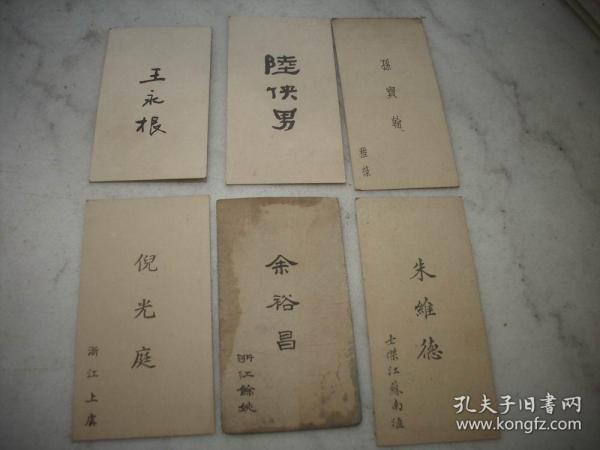 王永根
陸俠男
孫寶翰
雅棠
倪光庭
浙江上虞
余裕昌
浙江餘姚
朱維德
士傑江蘇南滙
孔夫子旧书网
www.kongfz.com